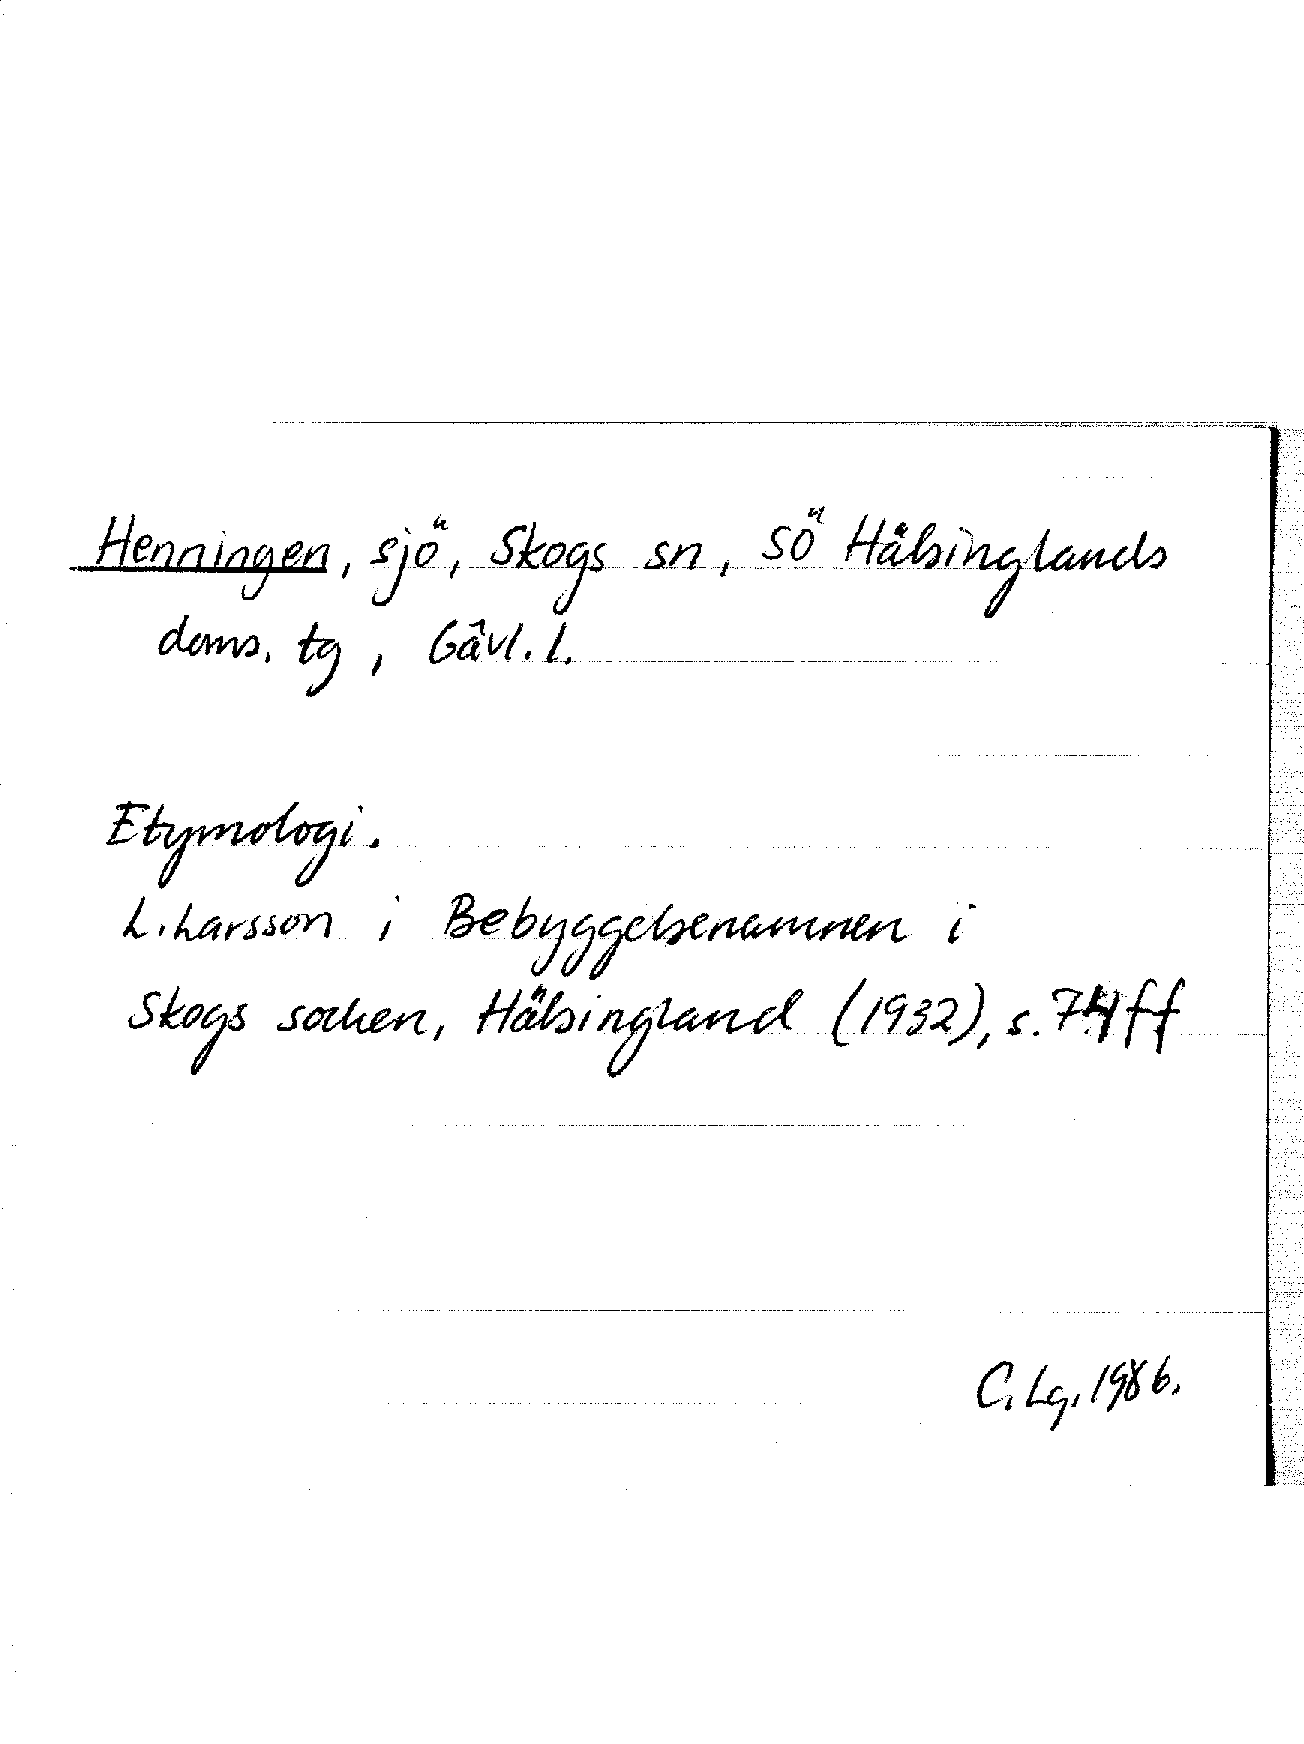 Henningen, sjö, Skogs sn, SÖ Hälsinglands
doms. tg, Gävl. l.
Etymologi.
L. Larsson i Bebyggelsenamnen i
Skogs socken, Hälsingland (1932), s. 74 ff
C. Lg. 1986.